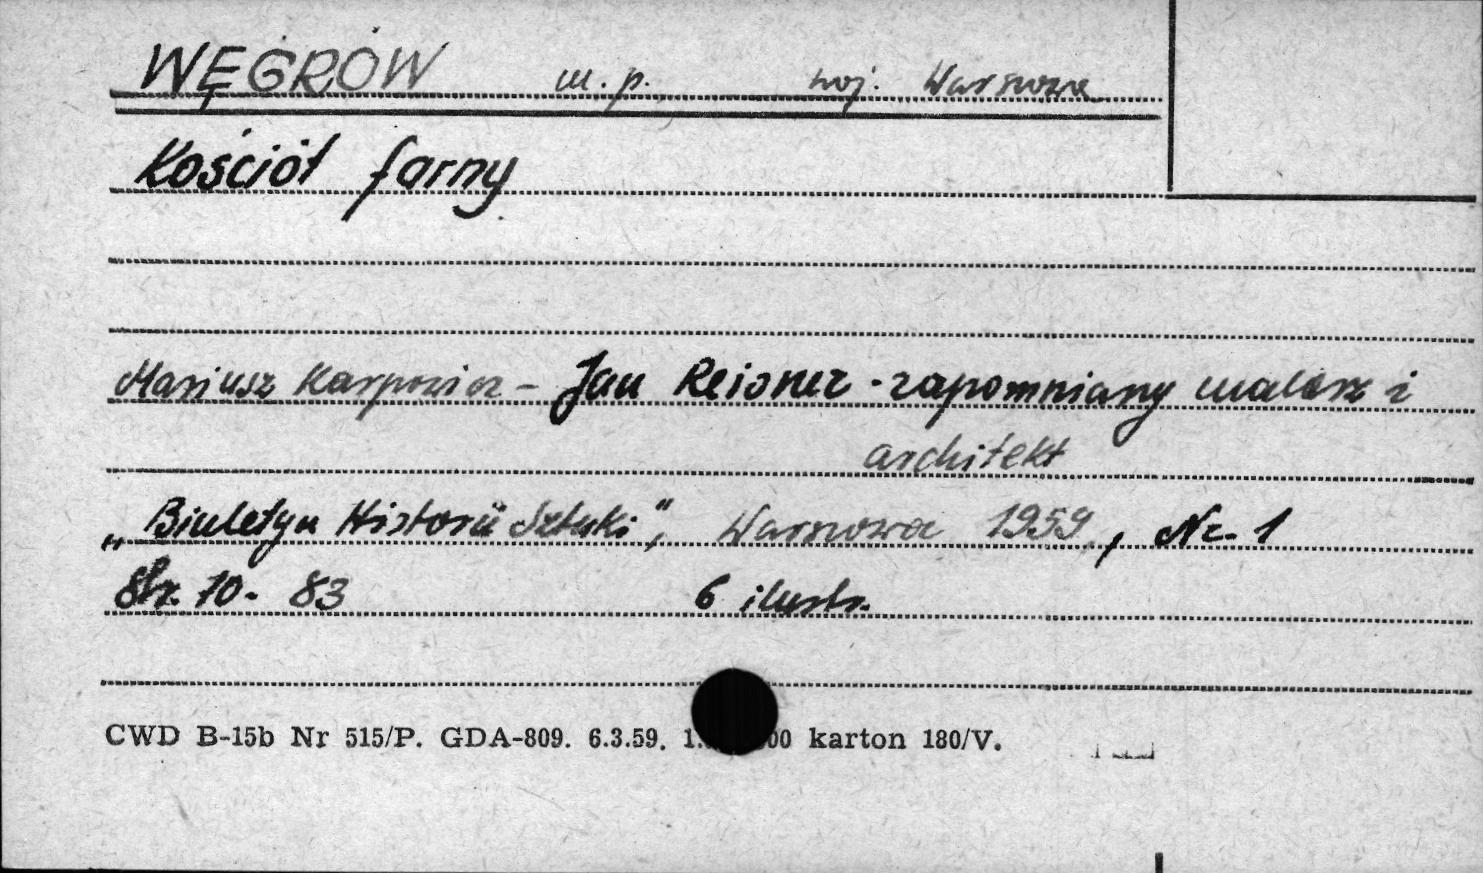 WĘGRÓW m.p. woj. Warszawa
Kościół farny
Mariusz Karpowicz - Jan Reisner - zapomniany malarz i
architekt
„Biuletyn Historii Sztuki", Warszawa 1959, Nr. 1
Str. 70 - 83 6 ilustr.
CWD B-15b Nr 515/P. GDA-809. 6.3.59. 00 karton 180/V.